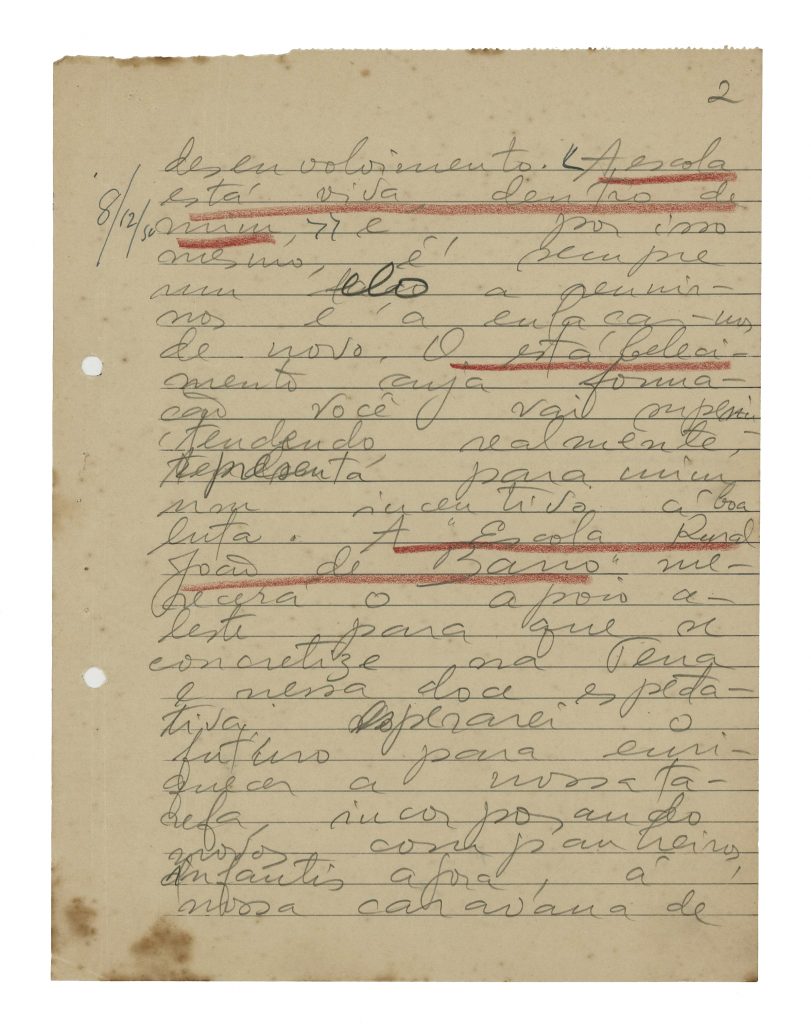 2
desenvolvimento. "A escola
8/12/50
está viva, dentro de
mim," e por isso
mesmo, é sempre
um elo a reunir-
nos e a enlaçar-nos
de novo. O estabeleci-
mento cuja forma-
ção você vai superin
tendendo, realmente,
representa para mim
um incentivo á boa
luta. A "Escola Rural
João de Barro" me-
recerá o apoio ce-
leste para que se
concretize na Terra
e nessa doce especta-
tiva, esperarei o
futuro para enri-
quecer a nossa ta-
refa, incorporando
novos companheiros,
infantis agora, á
nossa caravana de